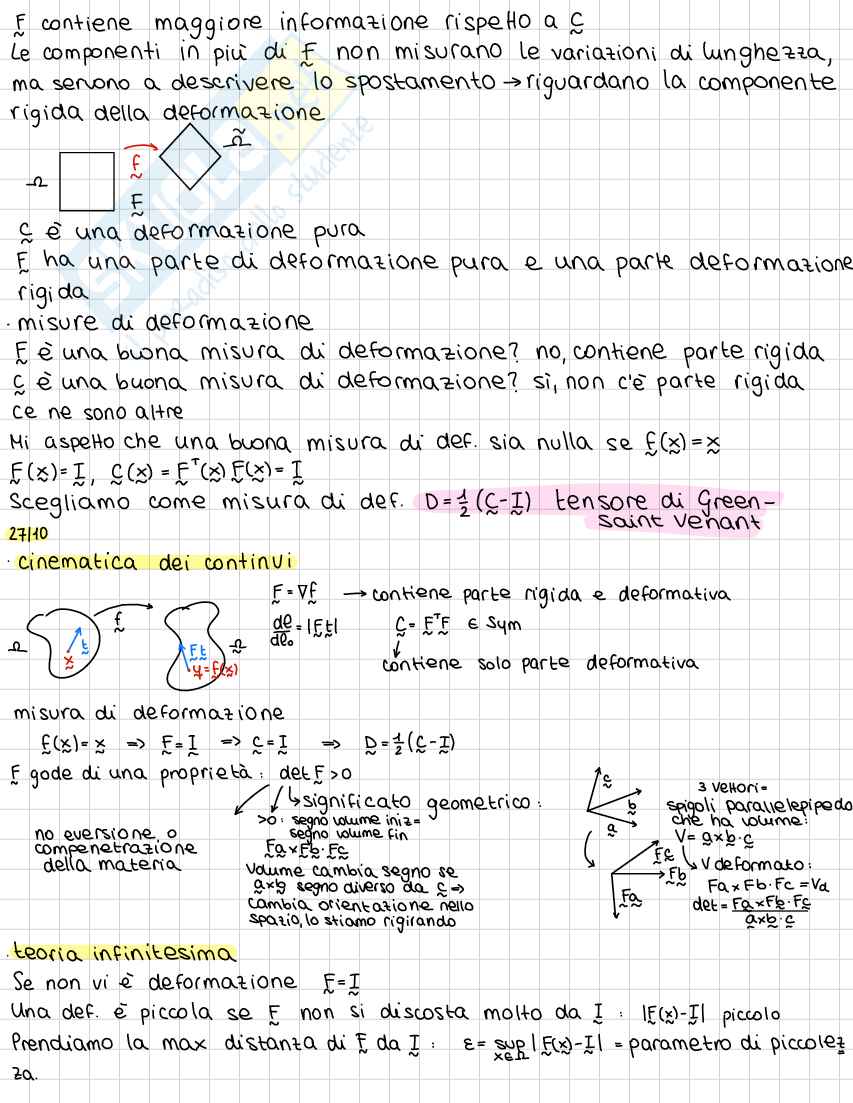 F contiene maggiore informazione rispetto a C
Le componenti in più di F non misurano le variazioni di lunghezza,
ma servono a descrivere lo spostamento → riguardano la componente
rigida della deformazione
Ω f F Ω̃
C è una deformazione pura
F ha una parte di deformazione pura e una parte deformazione
rigida
· misure di deformazione
F è una buona misura di deformazione? no, contiene parte rigida
C è una buona misura di deformazione? sì, non c'è parte rigida
ce ne sono altre
Mi aspetto che una buona misura di def. sia nulla se f(x) = x
F(x) = I, C(x) = Fᵀ(x) F(x) = I
Scegliamo come misura di def. D = 1/2 (C - I) tensore di Green-
Saint Venant
27/10
· cinematica dei continui
F = ∇f → contiene parte rigida e deformativa
dl/dl₀ = |Ft| C = FᵀF ∈ Sym
contiene solo parte deformativa
Ω x t f Ft y = f(x) Ω
misura di deformazione
f(x) = x => F = I => C = I => D = 1/2 (C - I)
F gode di una proprietà: det F > 0
no eversione o
compenetrazione
della materia
significato geometrico:
>0: segno volume iniz =
segno volume fin
Fa × Fb · Fc
Volume cambia segno se
a×b segno diverso da c =>
cambia orientazione nello
spazio, lo stiamo rigirando
c b a
Fc Fb Fa
3 vettori =
spigoli parallelepipedo
che ha volume:
V = a×b·c
V deformato:
Fa × Fb · Fc = Vd
det = Fa × Fb · Fc / a×b·c
· teoria infinitesima
Se non vi è deformazione F = I
Una def. è piccola se F non si discosta molto da I : |F(x)-I| piccolo
Prendiamo la max distanza di F da I : ε = sup x∈Ω |F(x)-I| = parametro di piccolez
za.
SKUOLA.net
il paradiso dello studente